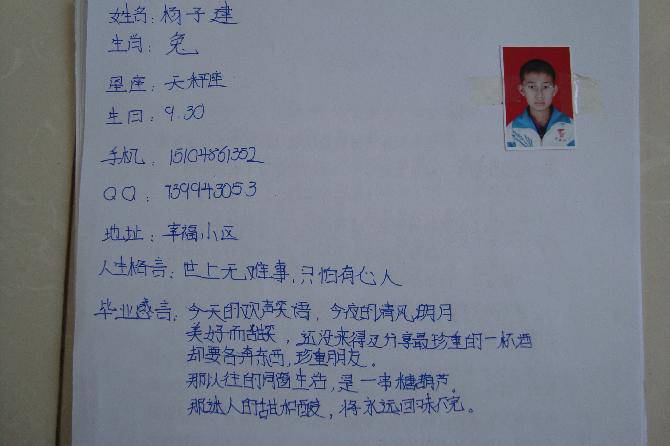 姓名：杨子建
生肖：兔
星座：天秤座
生日：9.30
手机：15104861352
QQ：739943053
地址：幸福小区
人生格言：世上无难事，只怕有心人
毕业感言：今天的欢声笑语，今夜的清风明月
美好而甜笑，还没来得及分享最珍重的一杯酒
却要各奔东西，珍重朋友。
那以往的同窗生活，是一串糖葫芦。
那迷人的甜和酸，将永远回味不完。